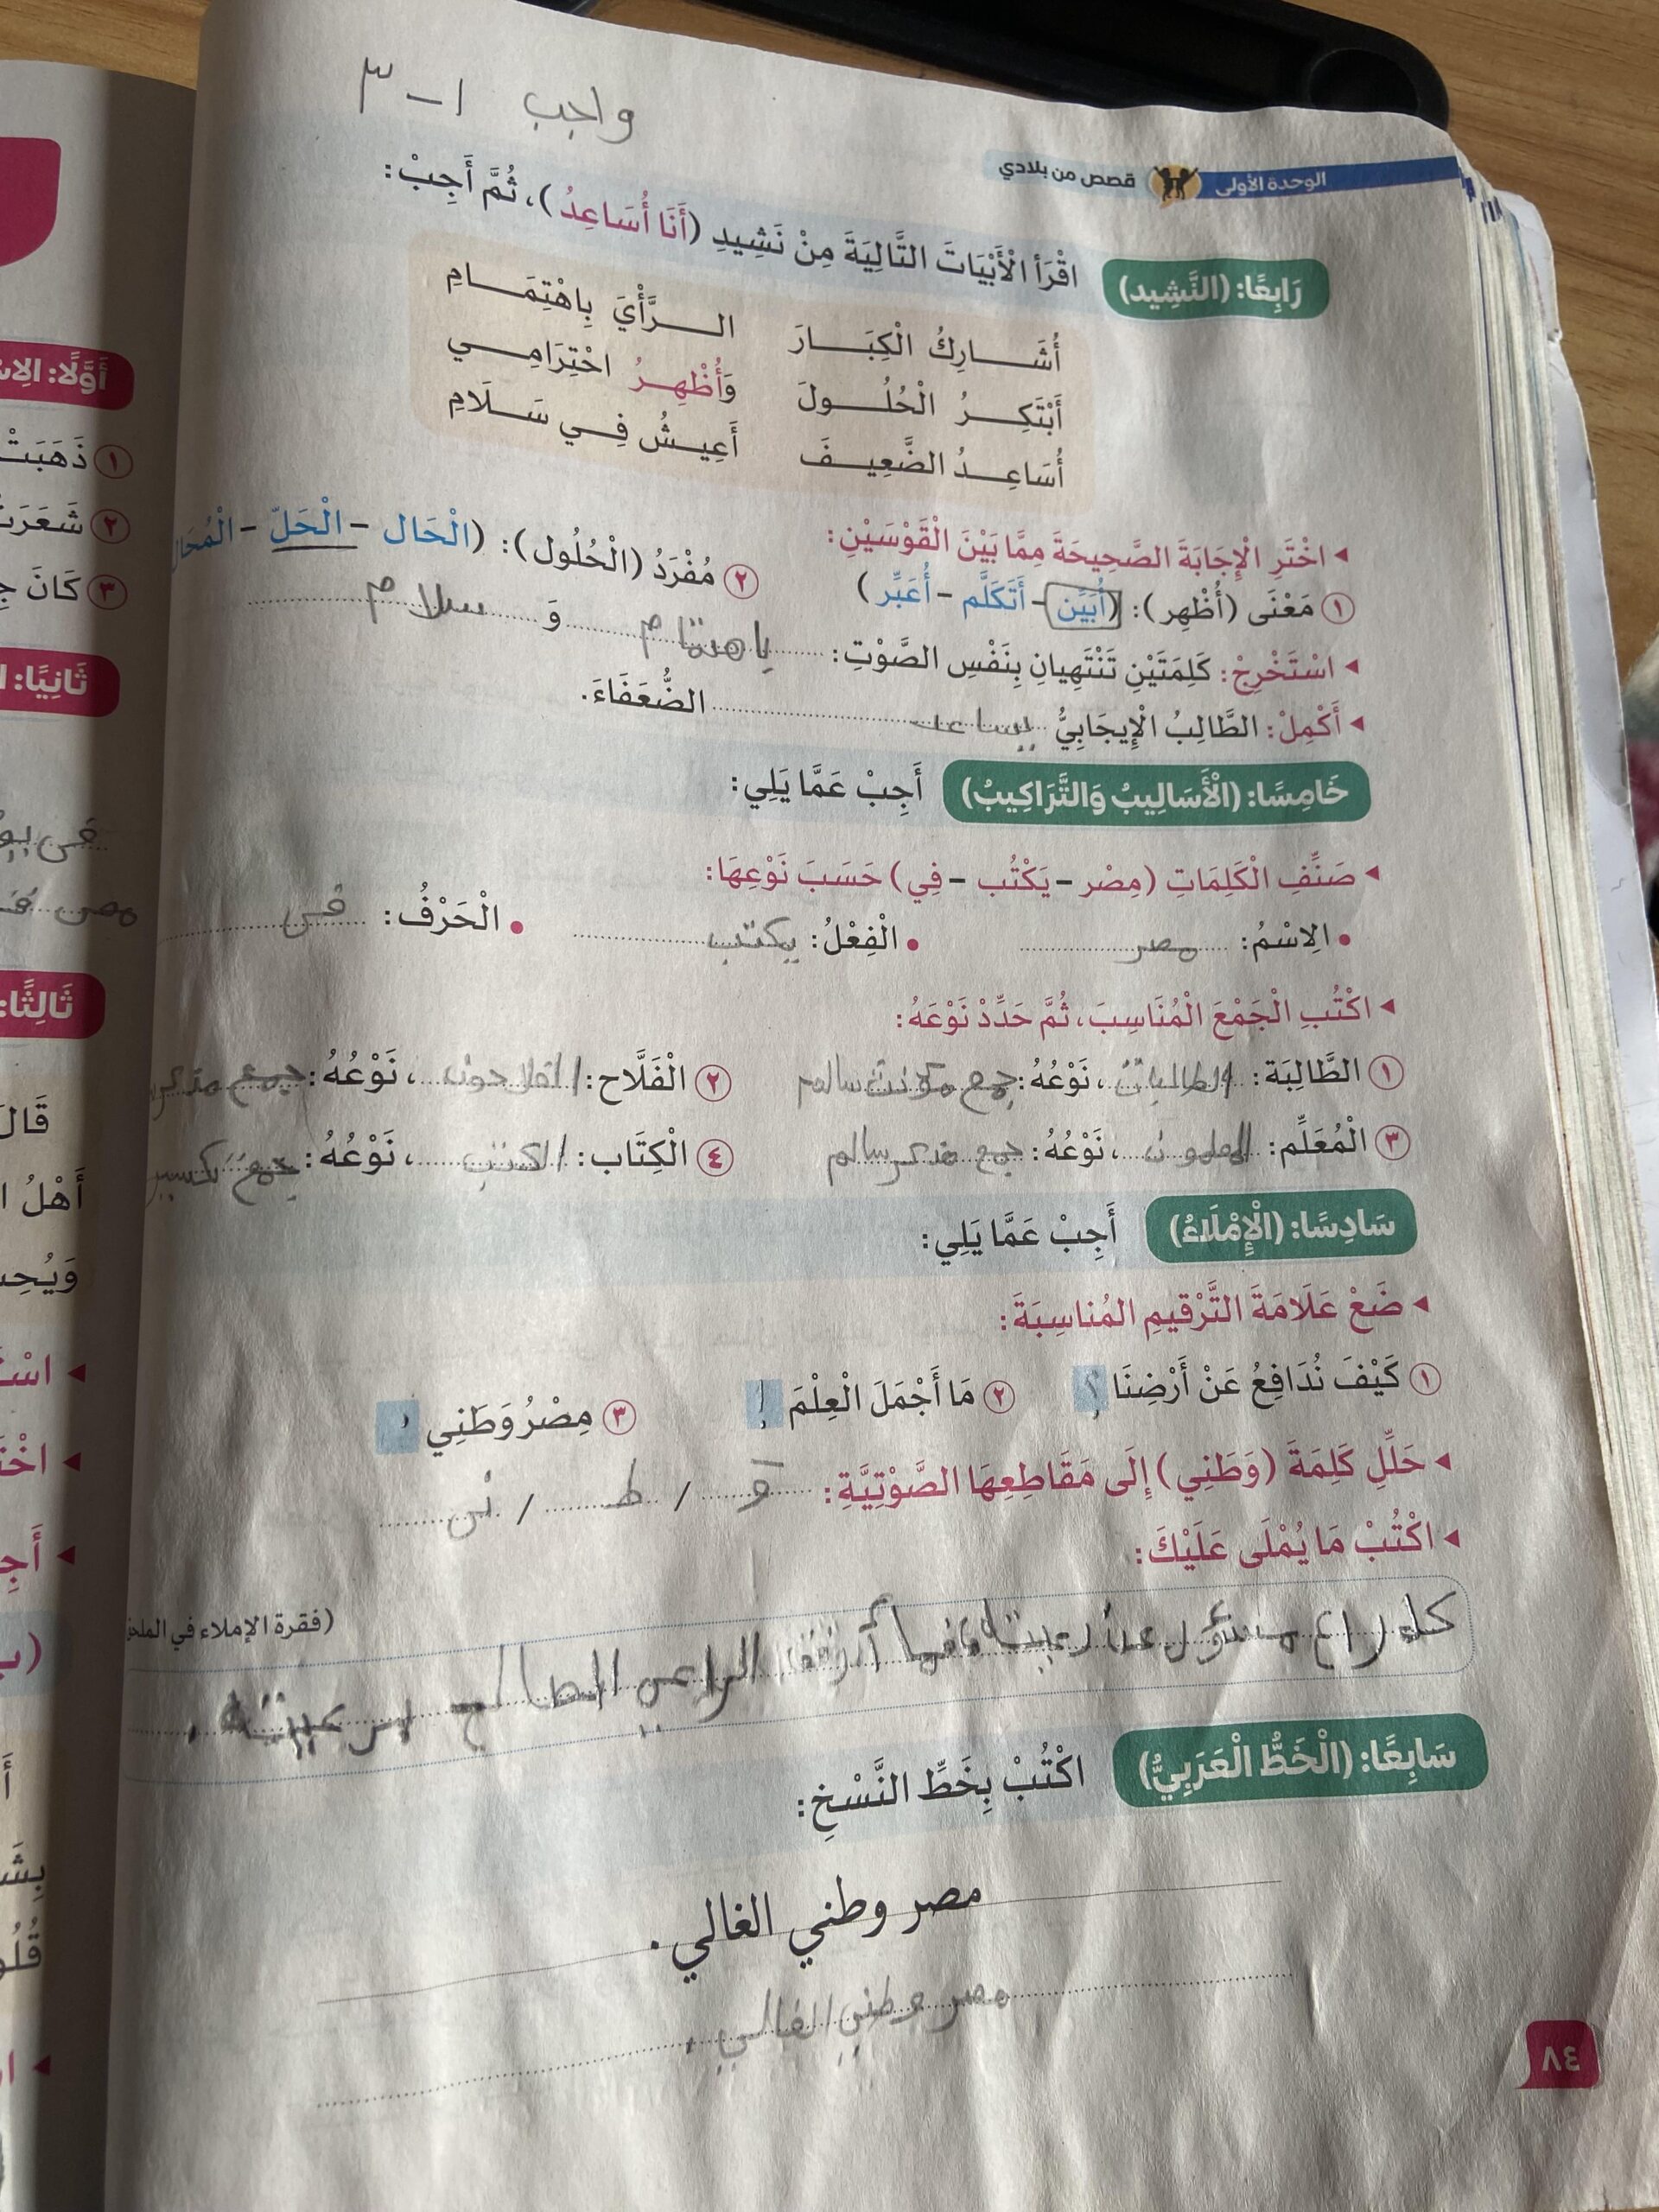 واجب ١-٣
الوحدة الأولى قصص من بلادي
رَابِعًا: (النَّشِيد) اقْرَأ الْأَبْيَاتَ التَّالِيَةَ مِنْ نَشِيدِ (أَنَا أُسَاعِدُ)، ثُمَّ أَجِبْ:
أُشَـــارِكُ الْكِبَـــارَ الـــرَّأْيَ بِاهْتِمَـــامِ
أَبْتَكِـــرُ الْحُلُـــولَ وَأُظْهِـــرُ احْتِرَامِـــي
أُسَاعِـــدُ الضَّعِيـــفَ أَعِيـــشُ فِـــي سَـــلَامِ
◂ اخْتَرِ الْإِجَابَةَ الصَّحِيحَةَ مِمَّا بَيْنَ الْقَوْسَيْنِ:
١ مَعْنَى (أُظْهِر): (أُبَيِّن – أَتَكَلَّم – أُعَبِّر) ٢ مُفْرَدُ (الْحُلُول): (الْحَال – الْحَلّ – الْمُحَال
◂ اسْتَخْرِجْ: كَلِمَتَيْنِ تَنْتَهِيانِ بِنَفْسِ الصَّوْتِ: باهتمام وَ سلام
◂ أَكْمِلْ: الطَّالِبُ الْإِيجَابِيُّ يساعد الضُّعَفَاءَ.
خَامِسًا: (الْأَسَالِيبُ وَالتَّرَاكِيبُ) أَجِبْ عَمَّا يَلِي:
◂ صَنِّفِ الْكَلِمَاتِ (مِصْر – يَكْتُب – فِي) حَسَبَ نَوْعِهَا:
• الِاسْمُ: مصر • الْفِعْلُ: يكتب • الْحَرْفُ: فى
◂ اكْتُبِ الْجَمْعَ الْمُنَاسِبَ، ثُمَّ حَدِّدْ نَوْعَهُ:
١ الطَّالِبَة: الطالبات، نَوْعُهُ: جمع مؤنث سالم ٢ الْفَلَّاح: الفلاحون، نَوْعُهُ: جمع مذكر
٣ الْمُعَلِّم: المعلمون، نَوْعُهُ: جمع مذكر سالم ٤ الْكِتَاب: الكتب، نَوْعُهُ: جمع تكسير
سَادِسًا: (الْإِمْلَاءُ) أَجِبْ عَمَّا يَلِي:
◂ ضَعْ عَلَامَةَ التَّرْقِيمِ المُناسِبَةَ:
١ كَيْفَ نُدَافِعُ عَنْ أَرْضِنَا ؟ ٢ مَا أَجْمَلَ الْعِلْمَ ! ٣ مِصْرُ وَطَنِي .
◂ حَلِّلِ كَلِمَةَ (وَطَنِي) إِلَى مَقَاطِعِهَا الصَّوْتِيَّةِ: وَ / ط / نى
◂ اكْتُبْ مَا يُمْلَى عَلَيْكَ:
(فقرة الإملاء في الملحق
كل راع مسئول عن رعيته فما أرفق الراعي الصالح برعيته .
سَابِعًا: (الْخَطُّ الْعَرَبِيُّ) اكْتُبْ بِخَطِّ النَّسْخِ:
مصر وطني الغالي .
مصر وطني الغالي .
٨٤
أَوَّلًا: الِاسْ
١ ذَهَبَتْ
٢ شَعَرَتْ
٣ كَانَ
ثَانِيًا:
ثَالِثًا:
قَالَ
أَهْلُ